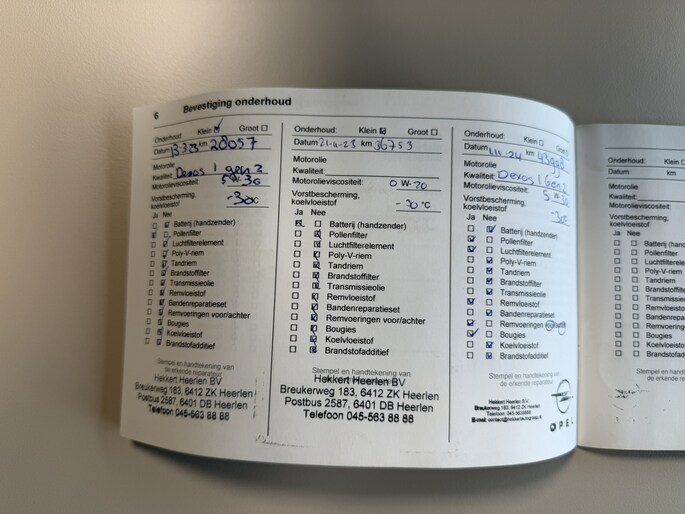 6 Bevestiging onderhoud
Onderhoud: Klein Groot
Datum 13-3-23 km 28057
Motorolie
Kwaliteit Dexos 1 gen 2
Motorolieviscositeit: 5 W-30
Vorstbescherming,
koelvloeistof -30c
Ja Nee
Batterij (handzender)
Pollenfilter
Luchtfilterelement
Poly-V-riem
Tandriem
Brandstoffilter
Transmissieolie
Remvloeistof
Bandenreparatieset
Remvoeringen voor/achter
Bougies
Koelvloeistof
Brandstofadditief
Stempel en handtekening van
de erkende reparateur
Hekkert Heerlen BV
Breukerweg 183, 6412 ZK Heerlen
Postbus 2587, 6401 DB Heerlen
Telefoon 045-563 88 88
Onderhoud: Klein Groot
Datum 21-11-23 km 36753
Motorolie
Kwaliteit:
Motorolieviscositeit: 0 W-20
Vorstbescherming,
koelvloeistof -30 °C
Ja Nee
Batterij (handzender)
Pollenfilter
Luchtfilterelement
Poly-V-riem
Tandriem
Brandstoffilter
Transmissieolie
Remvloeistof
Bandenreparatieset
Remvoeringen voor/achter
Bougies
Koelvloeistof
Brandstofadditief
Stempel en handtekening van
Hekkert Heerlen BV
Breukerweg 183, 6412 ZK Heerlen
Postbus 2587, 6401 DB Heerlen
Telefoon 045-563 88 88
Onderhoud: Klein Groot
Datum km
Motorolie
Kwaliteit: Dexos 1 Gen 2
Motorolieviscositeit: 5 W-30
Vorstbescherming,
koelvloeistof -30c
Ja Nee
Batterij (handzender)
Pollenfilter
Luchtfilterelement
Poly-V-riem
Tandriem
Brandstoffilter
Transmissieolie
Remvloeistof
Bandenreparatieset
Remvoeringen
Bougies
Koelvloeistof
Brandstofadditief
Stempel en handtekening van
de erkende reparateur
Hekkert Heerlen B.V.
Breukerweg 183, 6412 ZK Heerlen
OPEL
Onderhoud: Klein
Datum km
Motorolie
Kwaliteit:
Motorolieviscositeit:
Vorstbescherming,
koelvloeistof
Ja Nee
Batterij (hand
Pollenfilter
Luchtfilterele
Poly-V-riem
Tandriem
Brandstoffilt
Transmissie
Remvloeisto
Bandenrepa
Remvoering
Bougies
Koelvloeisto
Brandstofad
Stempel en handte
de erkende re